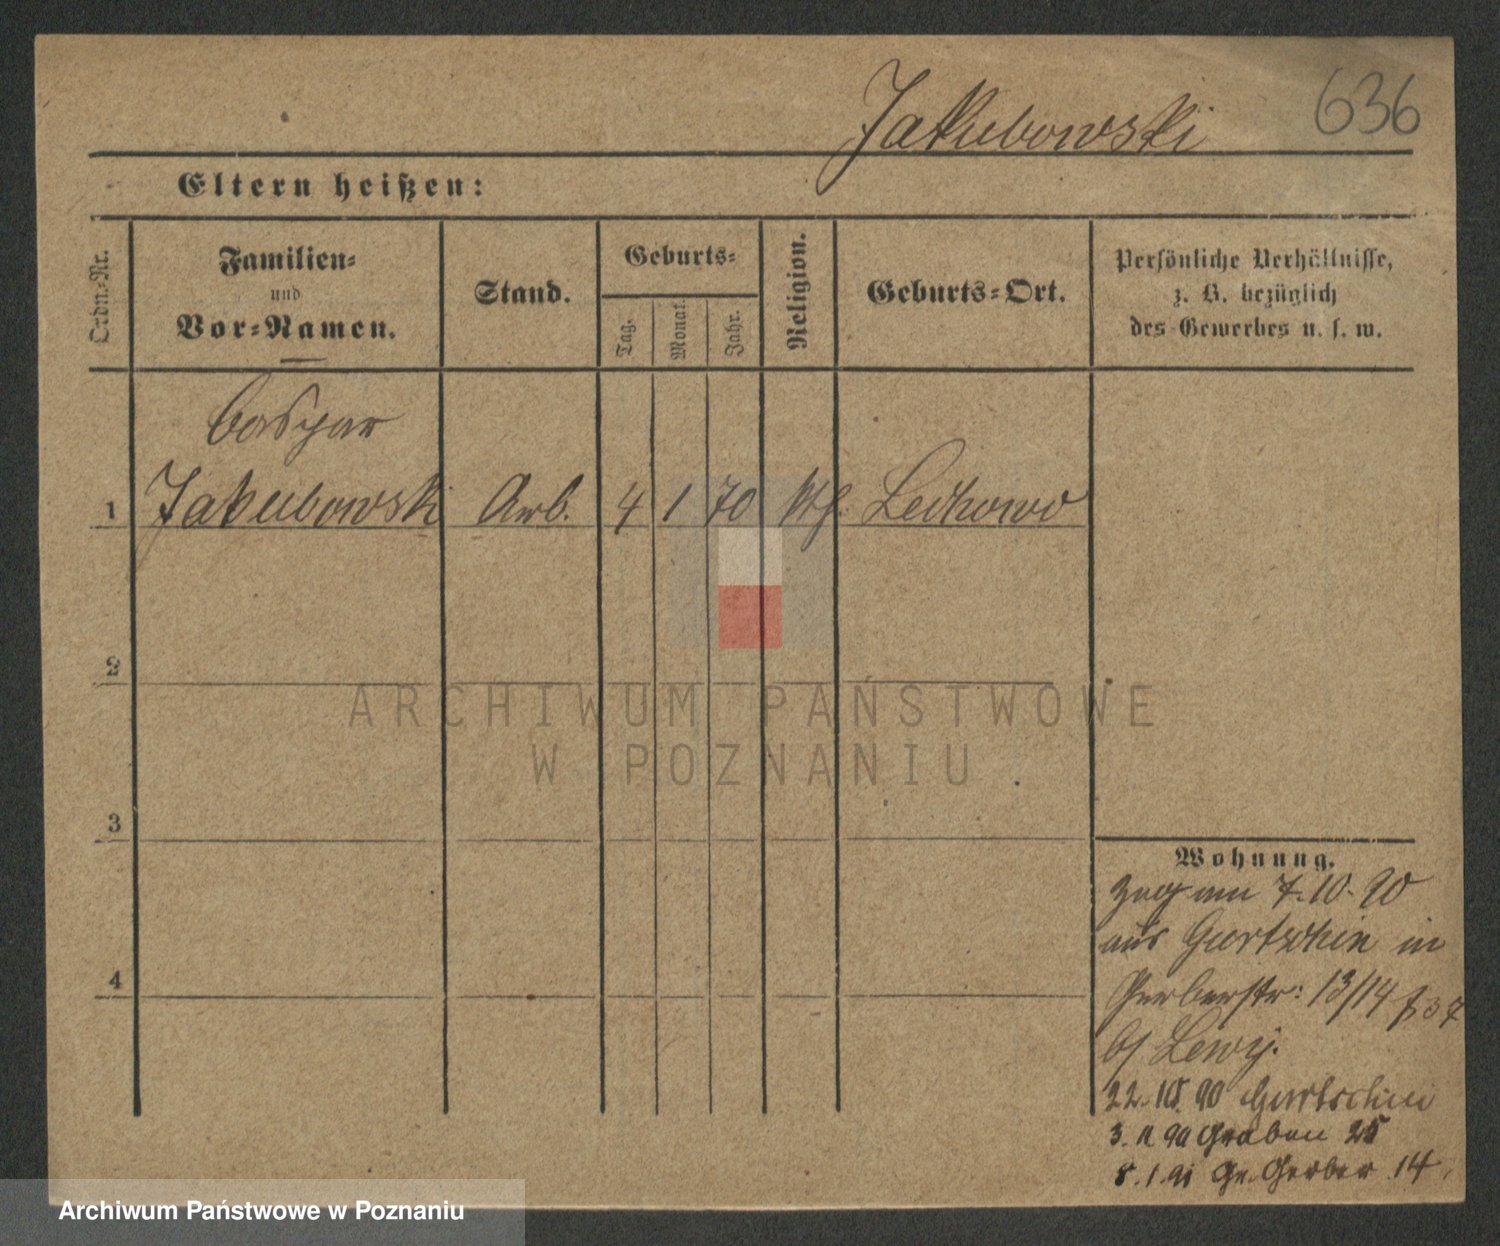 Jakubowski 636
Eltern heißen:
Ordn.-Nr.
Familien-
und
Vor-Namen.
Stand.
Geburts-
Tag.
Monat.
Jahr.
Religion.
Geburts-Ort.
Persönliche Verhältnisse,
z. B. bezüglich
des Gewerbes u. s. w.
Caspar
1 Jakubowski Arb. 4 1 70 kth. Leckowo
2
3
4
Wohnung.
Zug am 7.10.90
aus Gurtschin in
Gerberstr: 13/14
b/ Lewy.
22.10.90 Gurtschin
3. 11 90 Graben 25
8.1.91 Gr. Gerber 14
ARCHIWUM PAŃSTWOWE
W POZNANIU
Archiwum Państwowe w Poznaniu